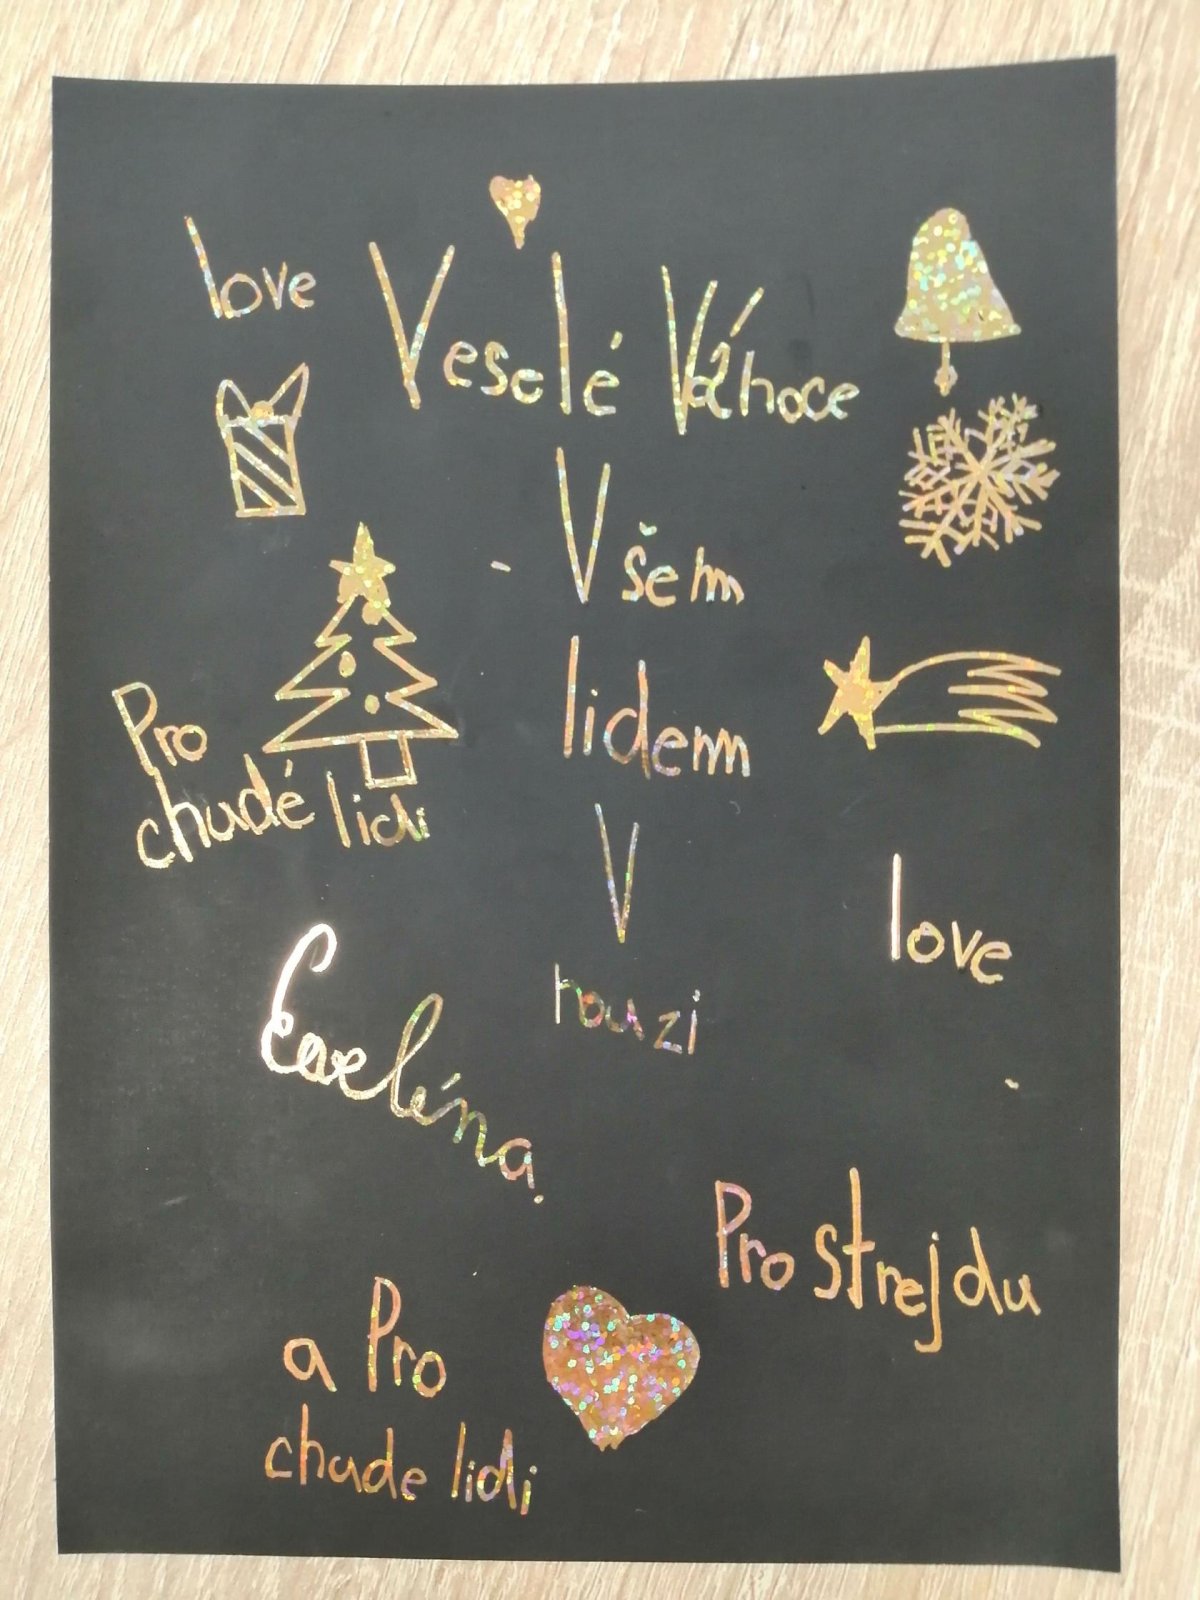 love
Veselé Váhoce
Všem
lidem
Pro
chudé lidi
v
nouzi
love
Eveléna.
Pro strejdu
a Pro
chude lidi